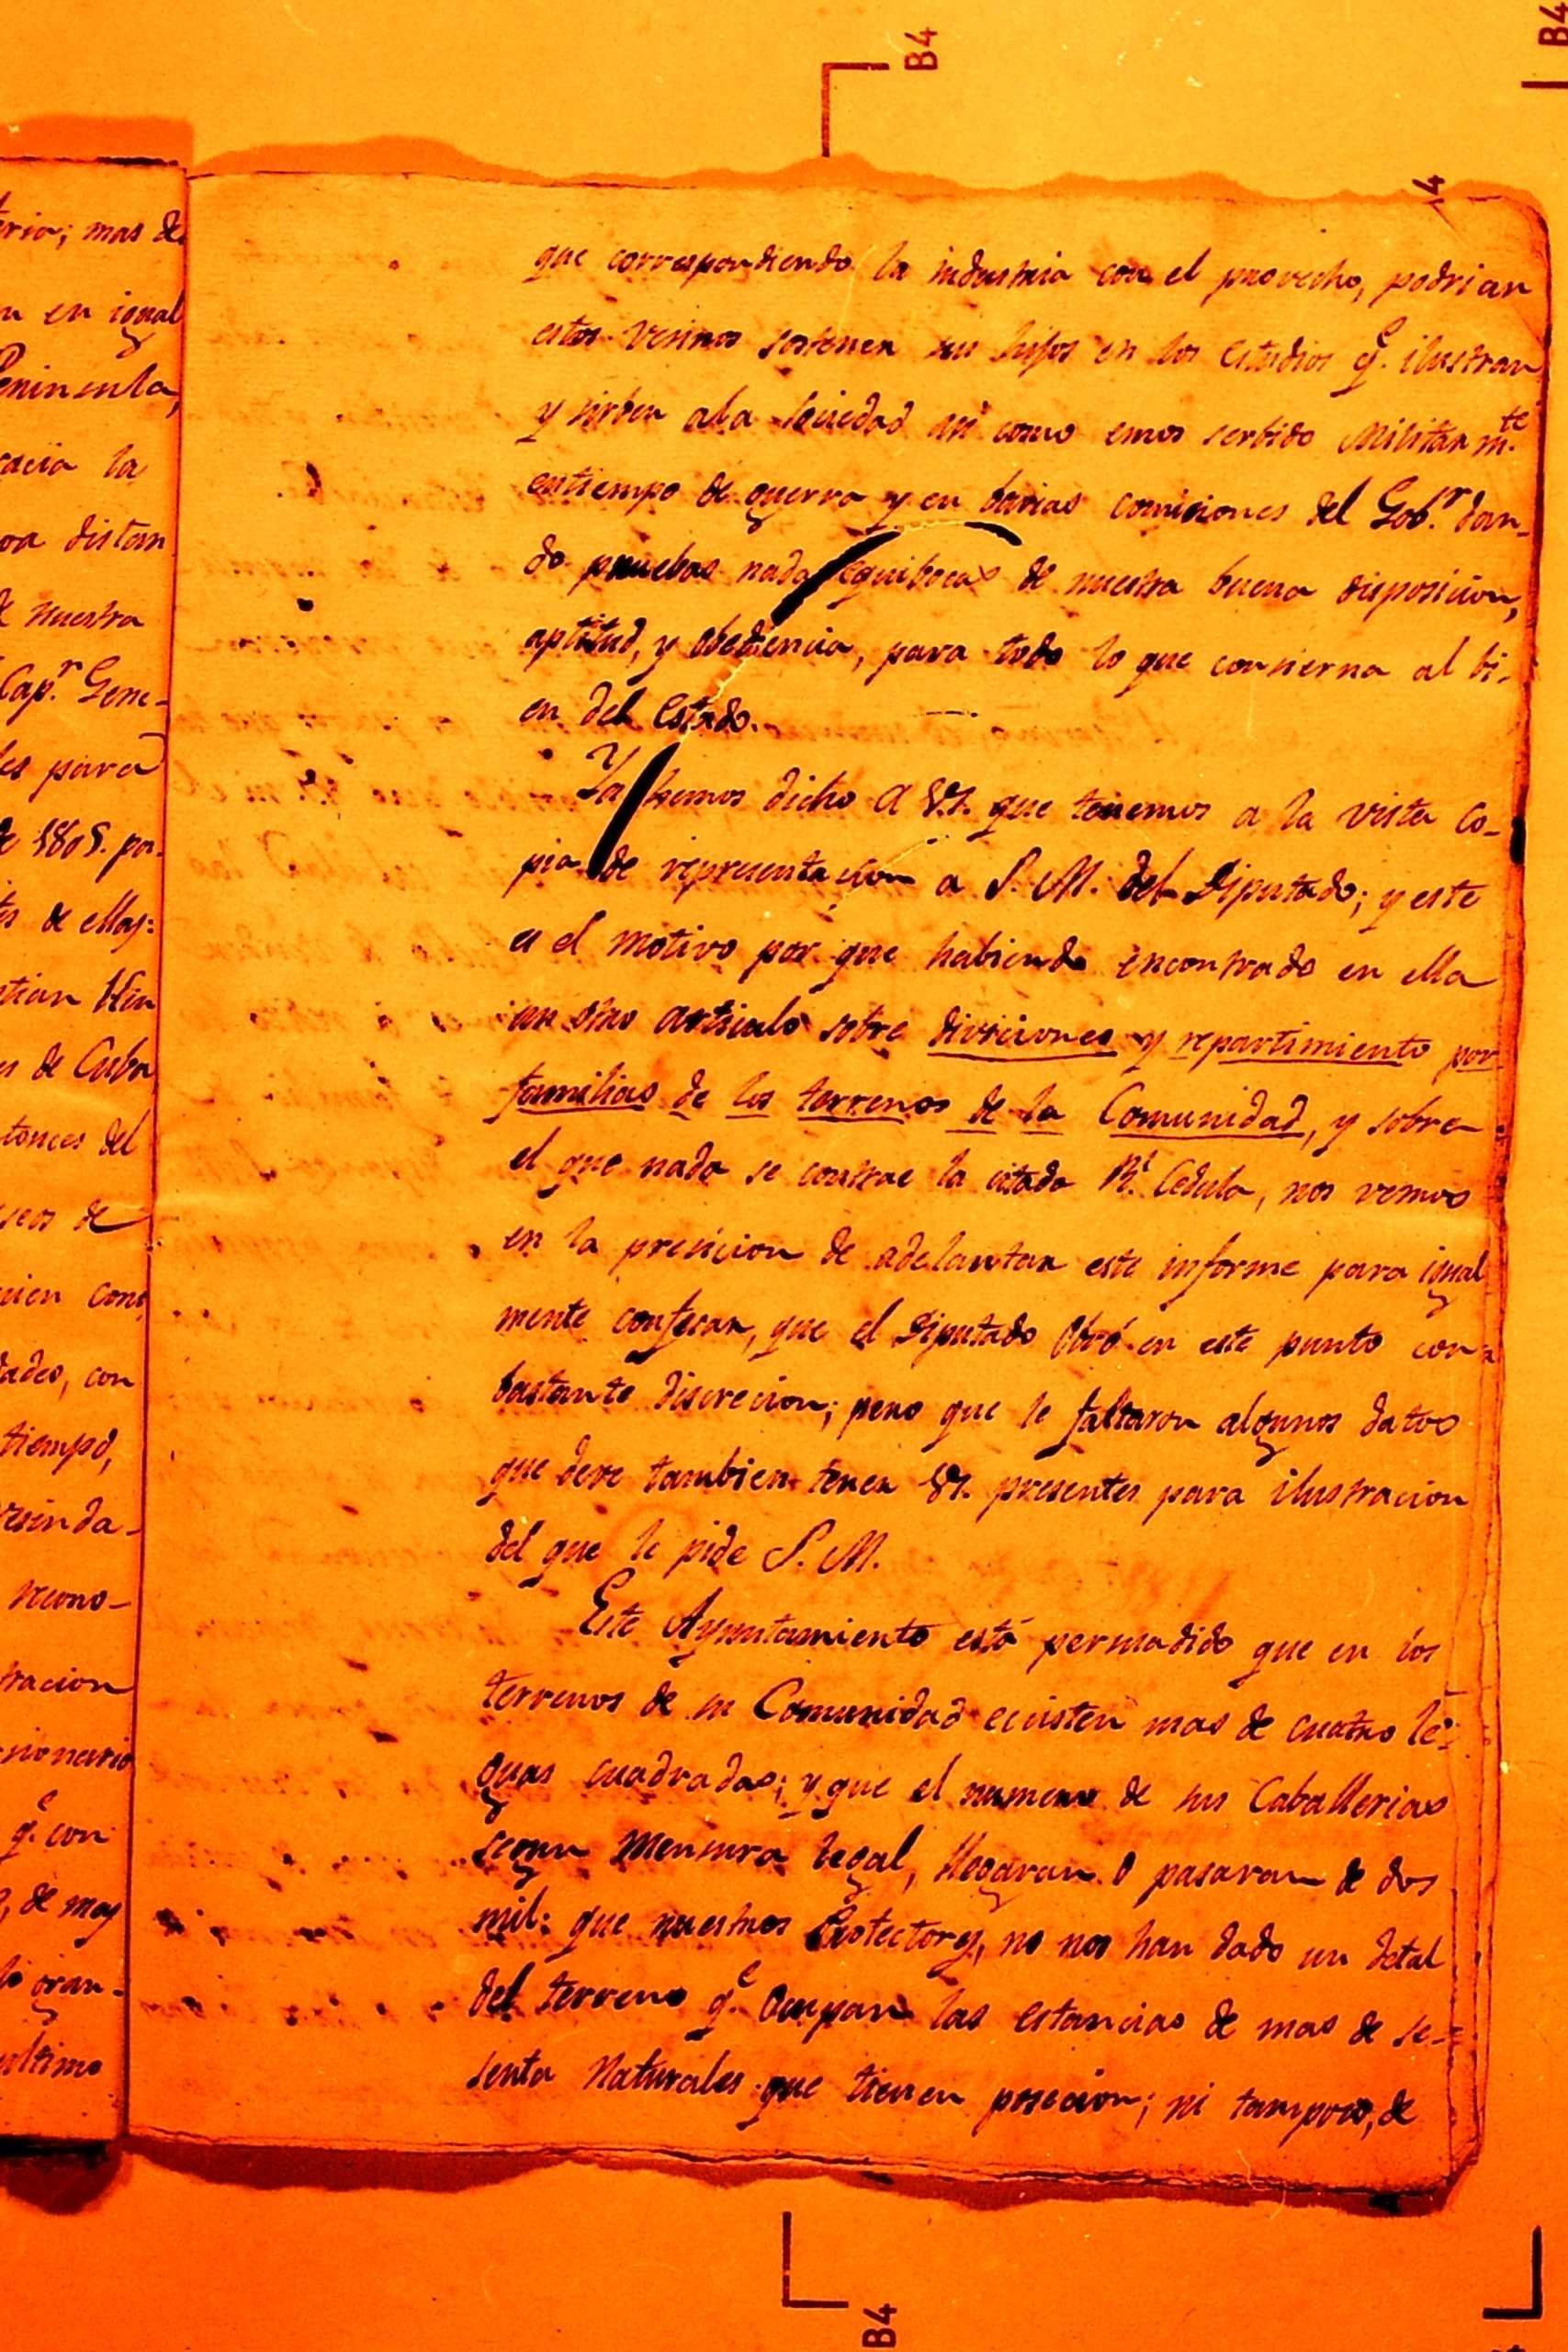 B4
B4
4
erio; mas de
n en igual
Peninsula,
racia la
oa distan
de nuestra
Cap.r Gene-
les para
de 1805. por
tes de ellas:
stian Hin
es de Cuba
tonces del
seos de
uien cons
dades, con
tiempo,
vesinda-
recono-
tracion
sionario
q.e con
o, de may
lo gran-
ultimo
que correspondiendo la industria con el provecho, podrian
estos vesinos sostener sus hijos en los estudios q.e ilustran
y sirben ala sociedad asi como emos serbido Militarm.te
entiempo de guerra y en barias comiciones del Gob.r dan-
do pruebas nada equibocas de nuestra buena disposicion,
aptitud, y obediencia, para todo lo que consierna al bi-
en del Estado.
Ya hemos dicho a V.S. que tenemos a la vista co-
pia de representacion a S. M. del Diputado; y este
es el motivo por que habiendo encontrado en ella
un otro articulo sobre diviciones y repartimiento por
familias de los terrenos de la Comunidad, y sobre
el que nada se contrae la citada R.l Cedula, nos vemos
en la presicion de adelantar este informe para igual
mente confesar, que el Diputado Obró en este punto con
bastante discrecion; pero que le faltaron algunos datos
que deve tambien tener VS. presentes para ilustracion
del que le pide S. M.
Este Ayuntamiento está persuadido que en los
terrenos de su Comunidad ecsisten mas de cuatro le-
guas cuadradas; y que el numero de sus Caballerias
segun Mensura legal, llegaran o pasaran de dos
mil: que nuestros Protectores, no nos han dado un detal
del terreno q.e Ocupan las estancias de mas de se-
senta Naturales que tienen posecion; ni tampoco, de
B4